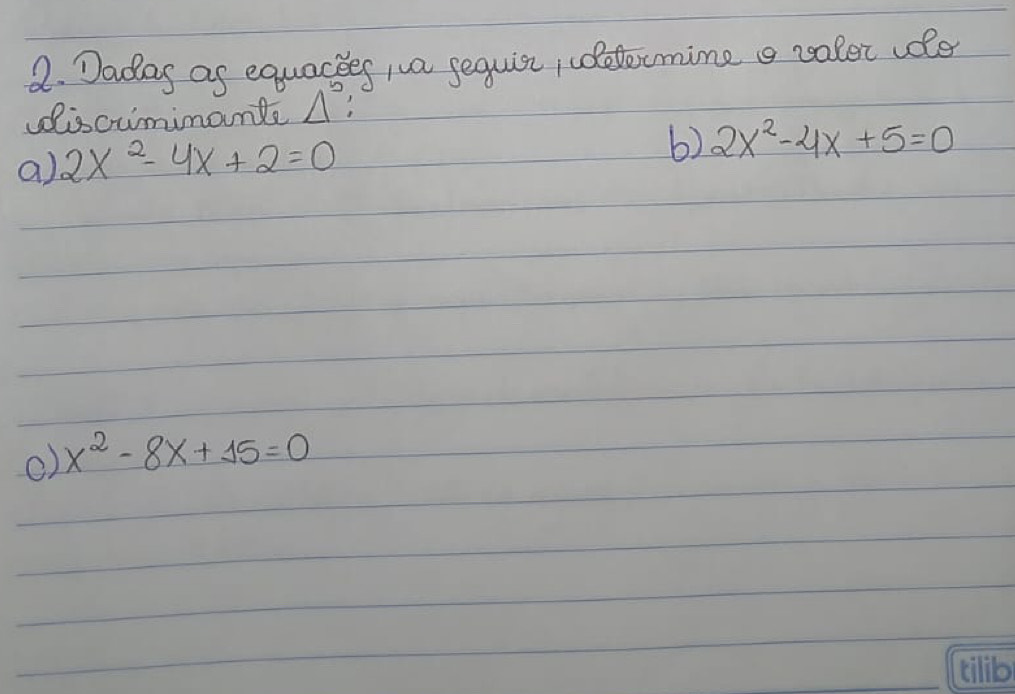 2. Dadas as equações, a seguir, determine o valor do
discriminante Δ:
a) 2x² - 4x + 2 = 0
b) 2x² - 4x + 5 = 0
c) x² - 8x + 15 = 0
tilib